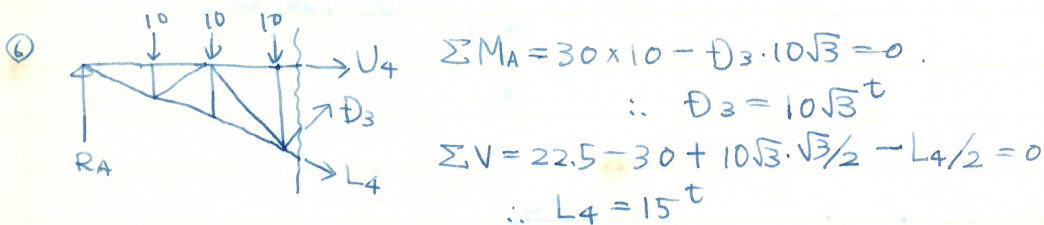 ⑥
10 10 10
U4
D3
L4
RA
ΣMA = 30 × 10 − D3・10√3 = 0.
∴ D3 = 10√3 t
ΣV = 22.5 − 30 + 10√3・√3/2 − L4/2 = 0
∴ L4 = 15 t